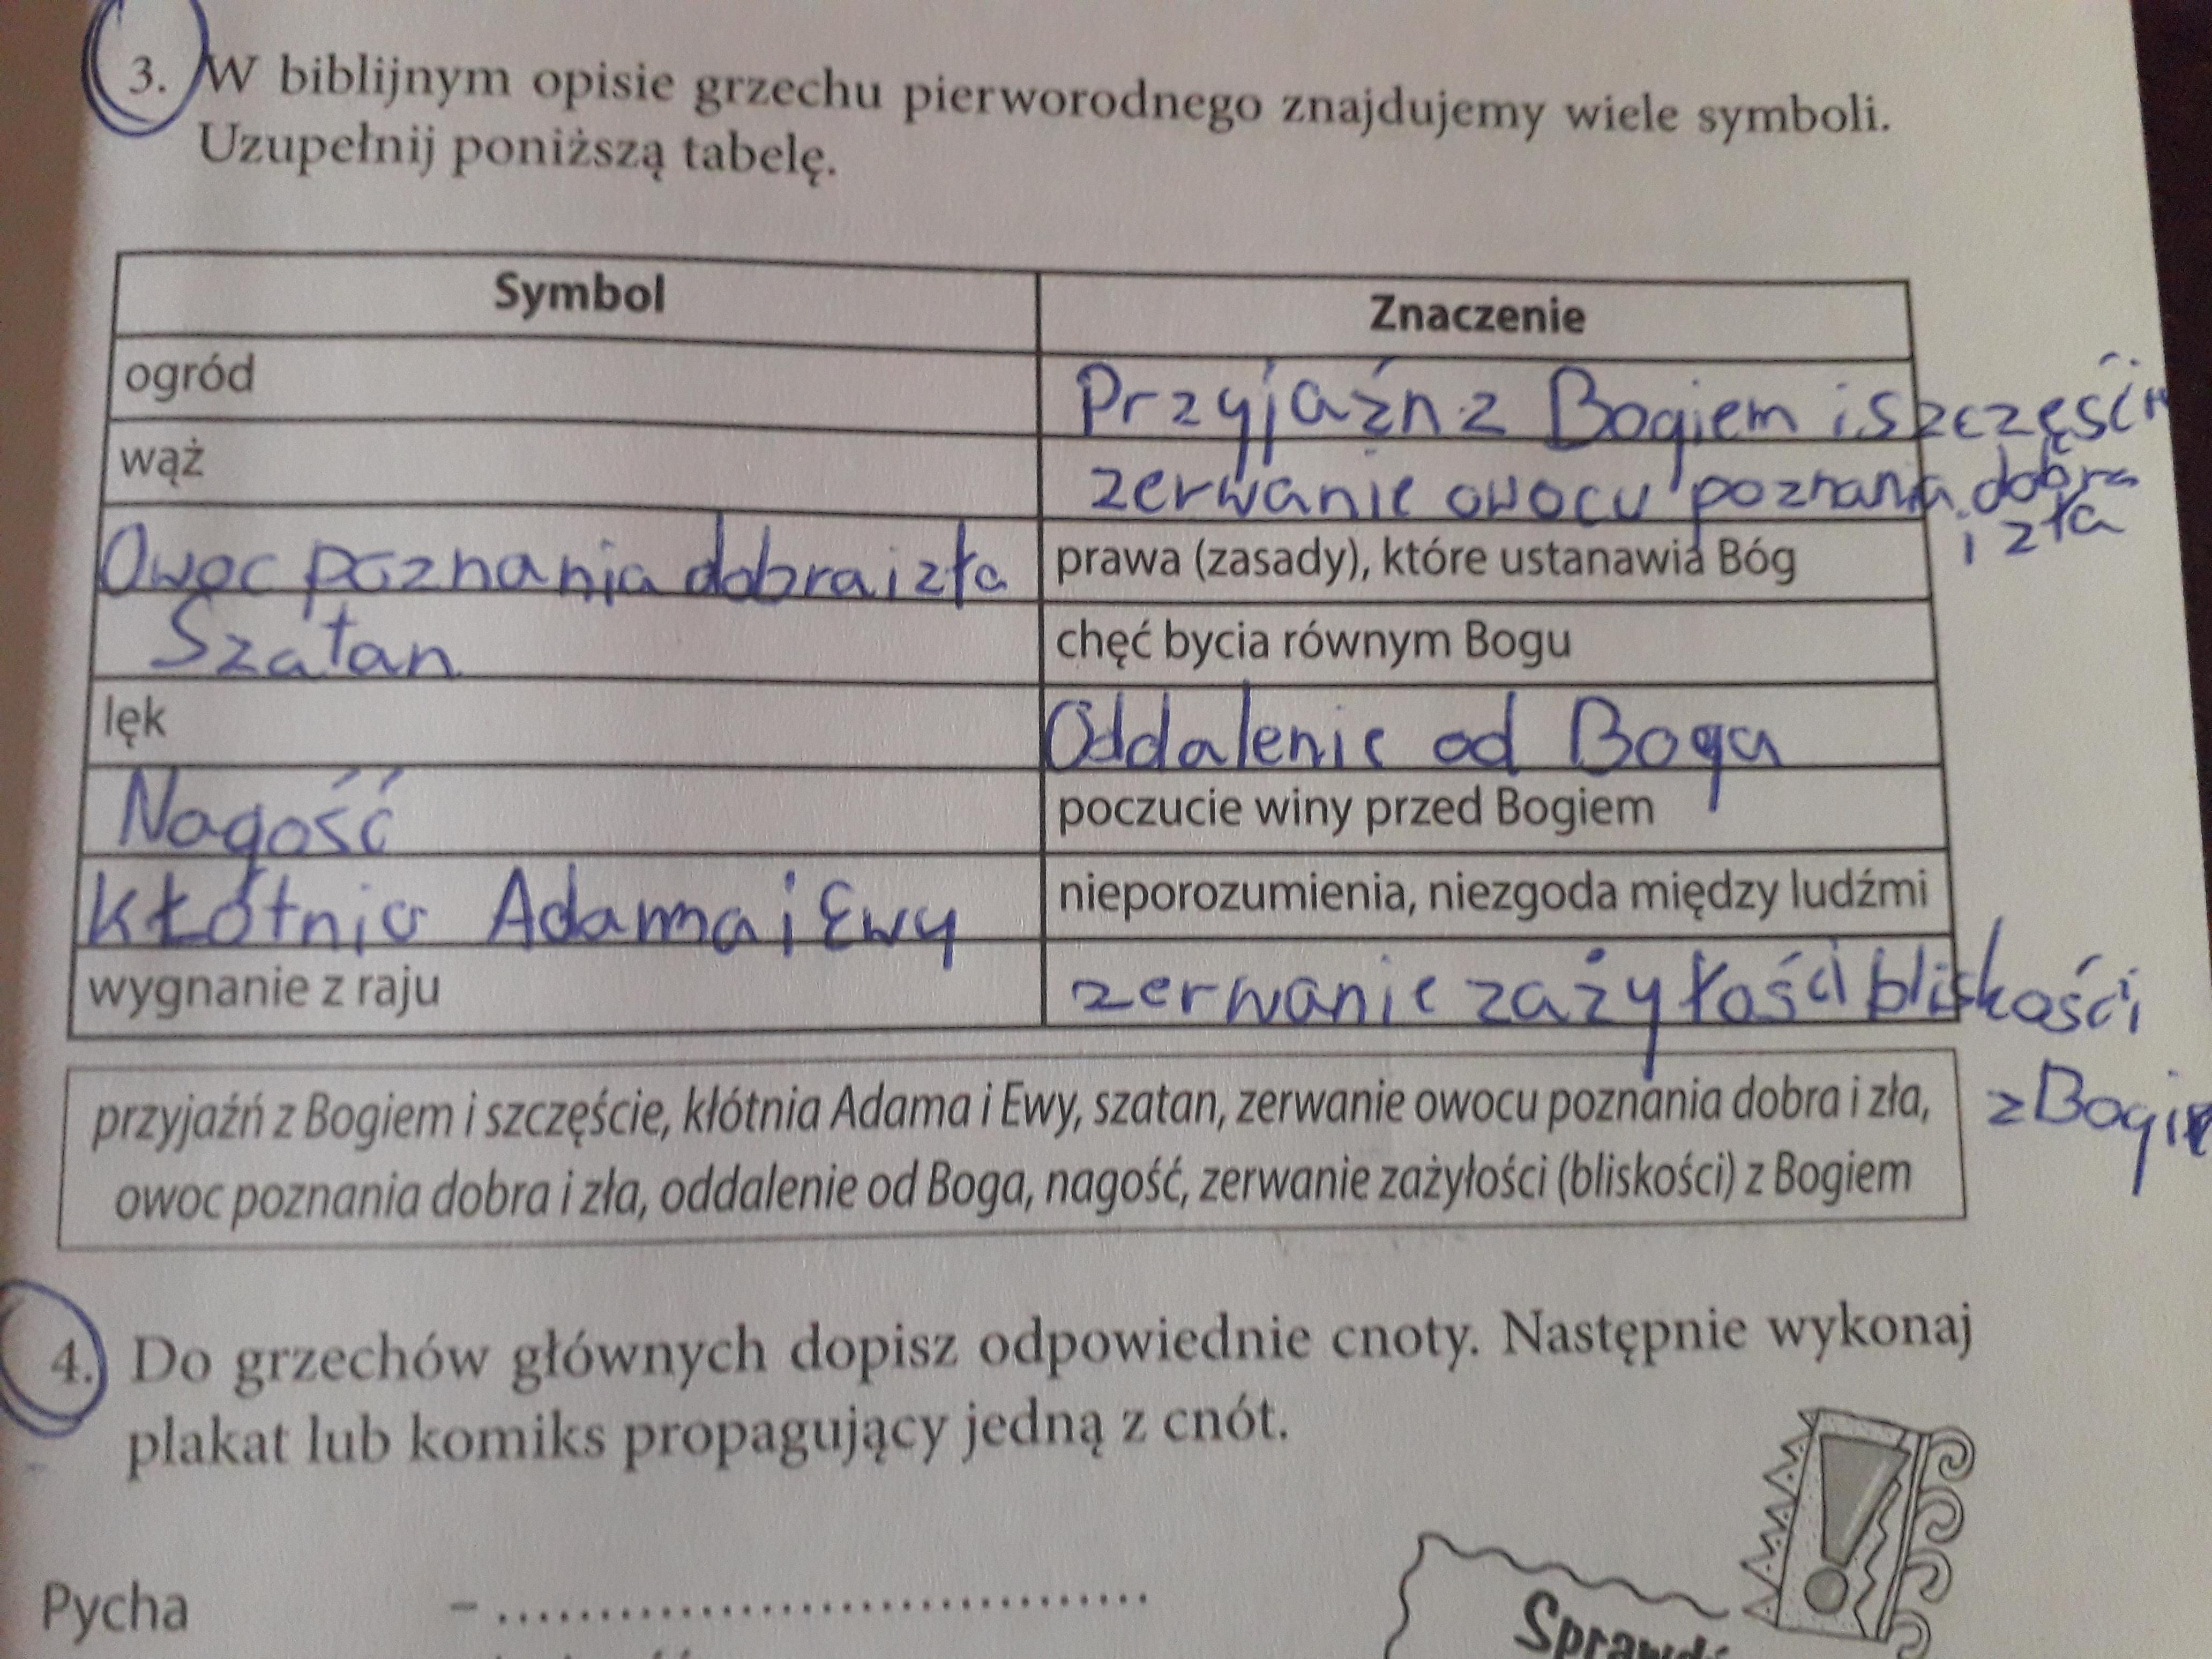 3. W biblijnym opisie grzechu pierworodnego znajdujemy wiele symboli.
Uzupełnij poniższą tabelę.
Symbol Znaczenie
ogród Przyjaźń z Bogiem i szczęście
wąż zerwanie owocu poznania dobra i zła
Owoc poznania dobra i zła prawa (zasady), które ustanawia Bóg
Szatan chęć bycia równym Bogu
lęk Oddalenie od Boga
Nagość poczucie winy przed Bogiem
Kłótnia Adama i Ewy nieporozumienia, niezgoda między ludźmi
wygnanie z raju zerwanie zażyłości bliskości
z Bogie
przyjaźń z Bogiem i szczęście, kłótnia Adama i Ewy, szatan, zerwanie owocu poznania dobra i zła,
owoc poznania dobra i zła, oddalenie od Boga, nagość, zerwanie zażyłości (bliskości) z Bogiem
4. Do grzechów głównych dopisz odpowiednie cnoty. Następnie wykonaj
plakat lub komiks propagujący jedną z cnót.
Pycha – ........................................